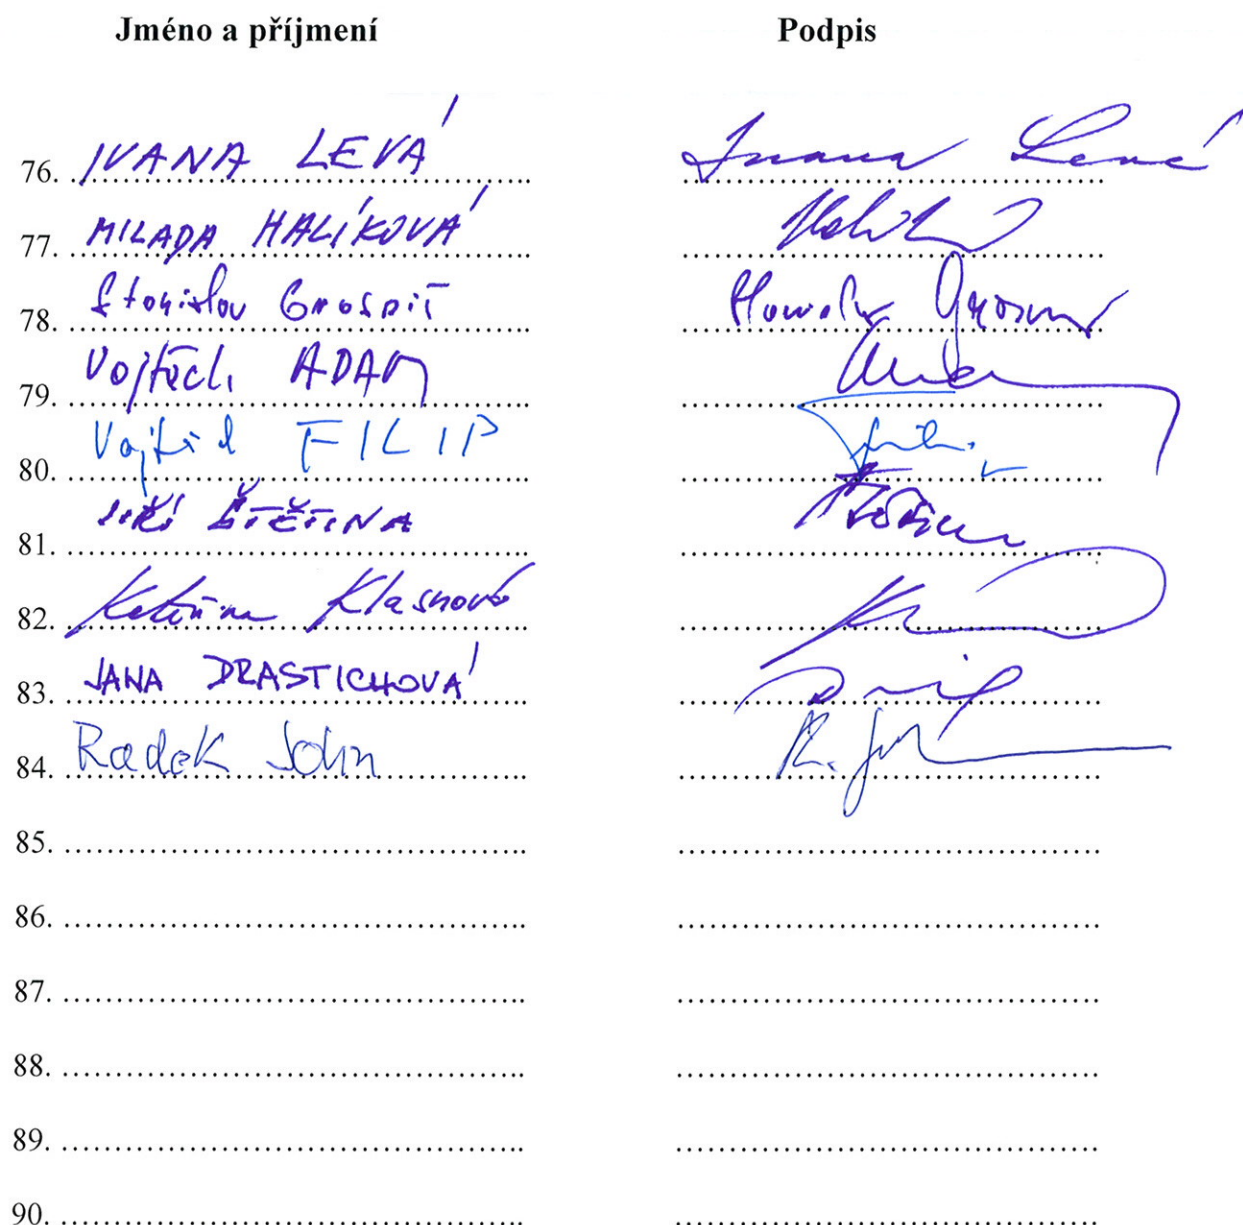 Jméno a příjmení Podpis
76. IVANA LEVÁ Ivana Levá
77. MILADA HALÍKOVÁ
78. Stanislav Grospič
79. Vojtěch ADAM
80. Vojtěch FILIP
81. JIŘÍ ŠTĚTINA
82. Kateřina Klasnová
83. JANA DRASTICHOVÁ
84. Radek John R. John
85.
86.
87.
88.
89.
90.